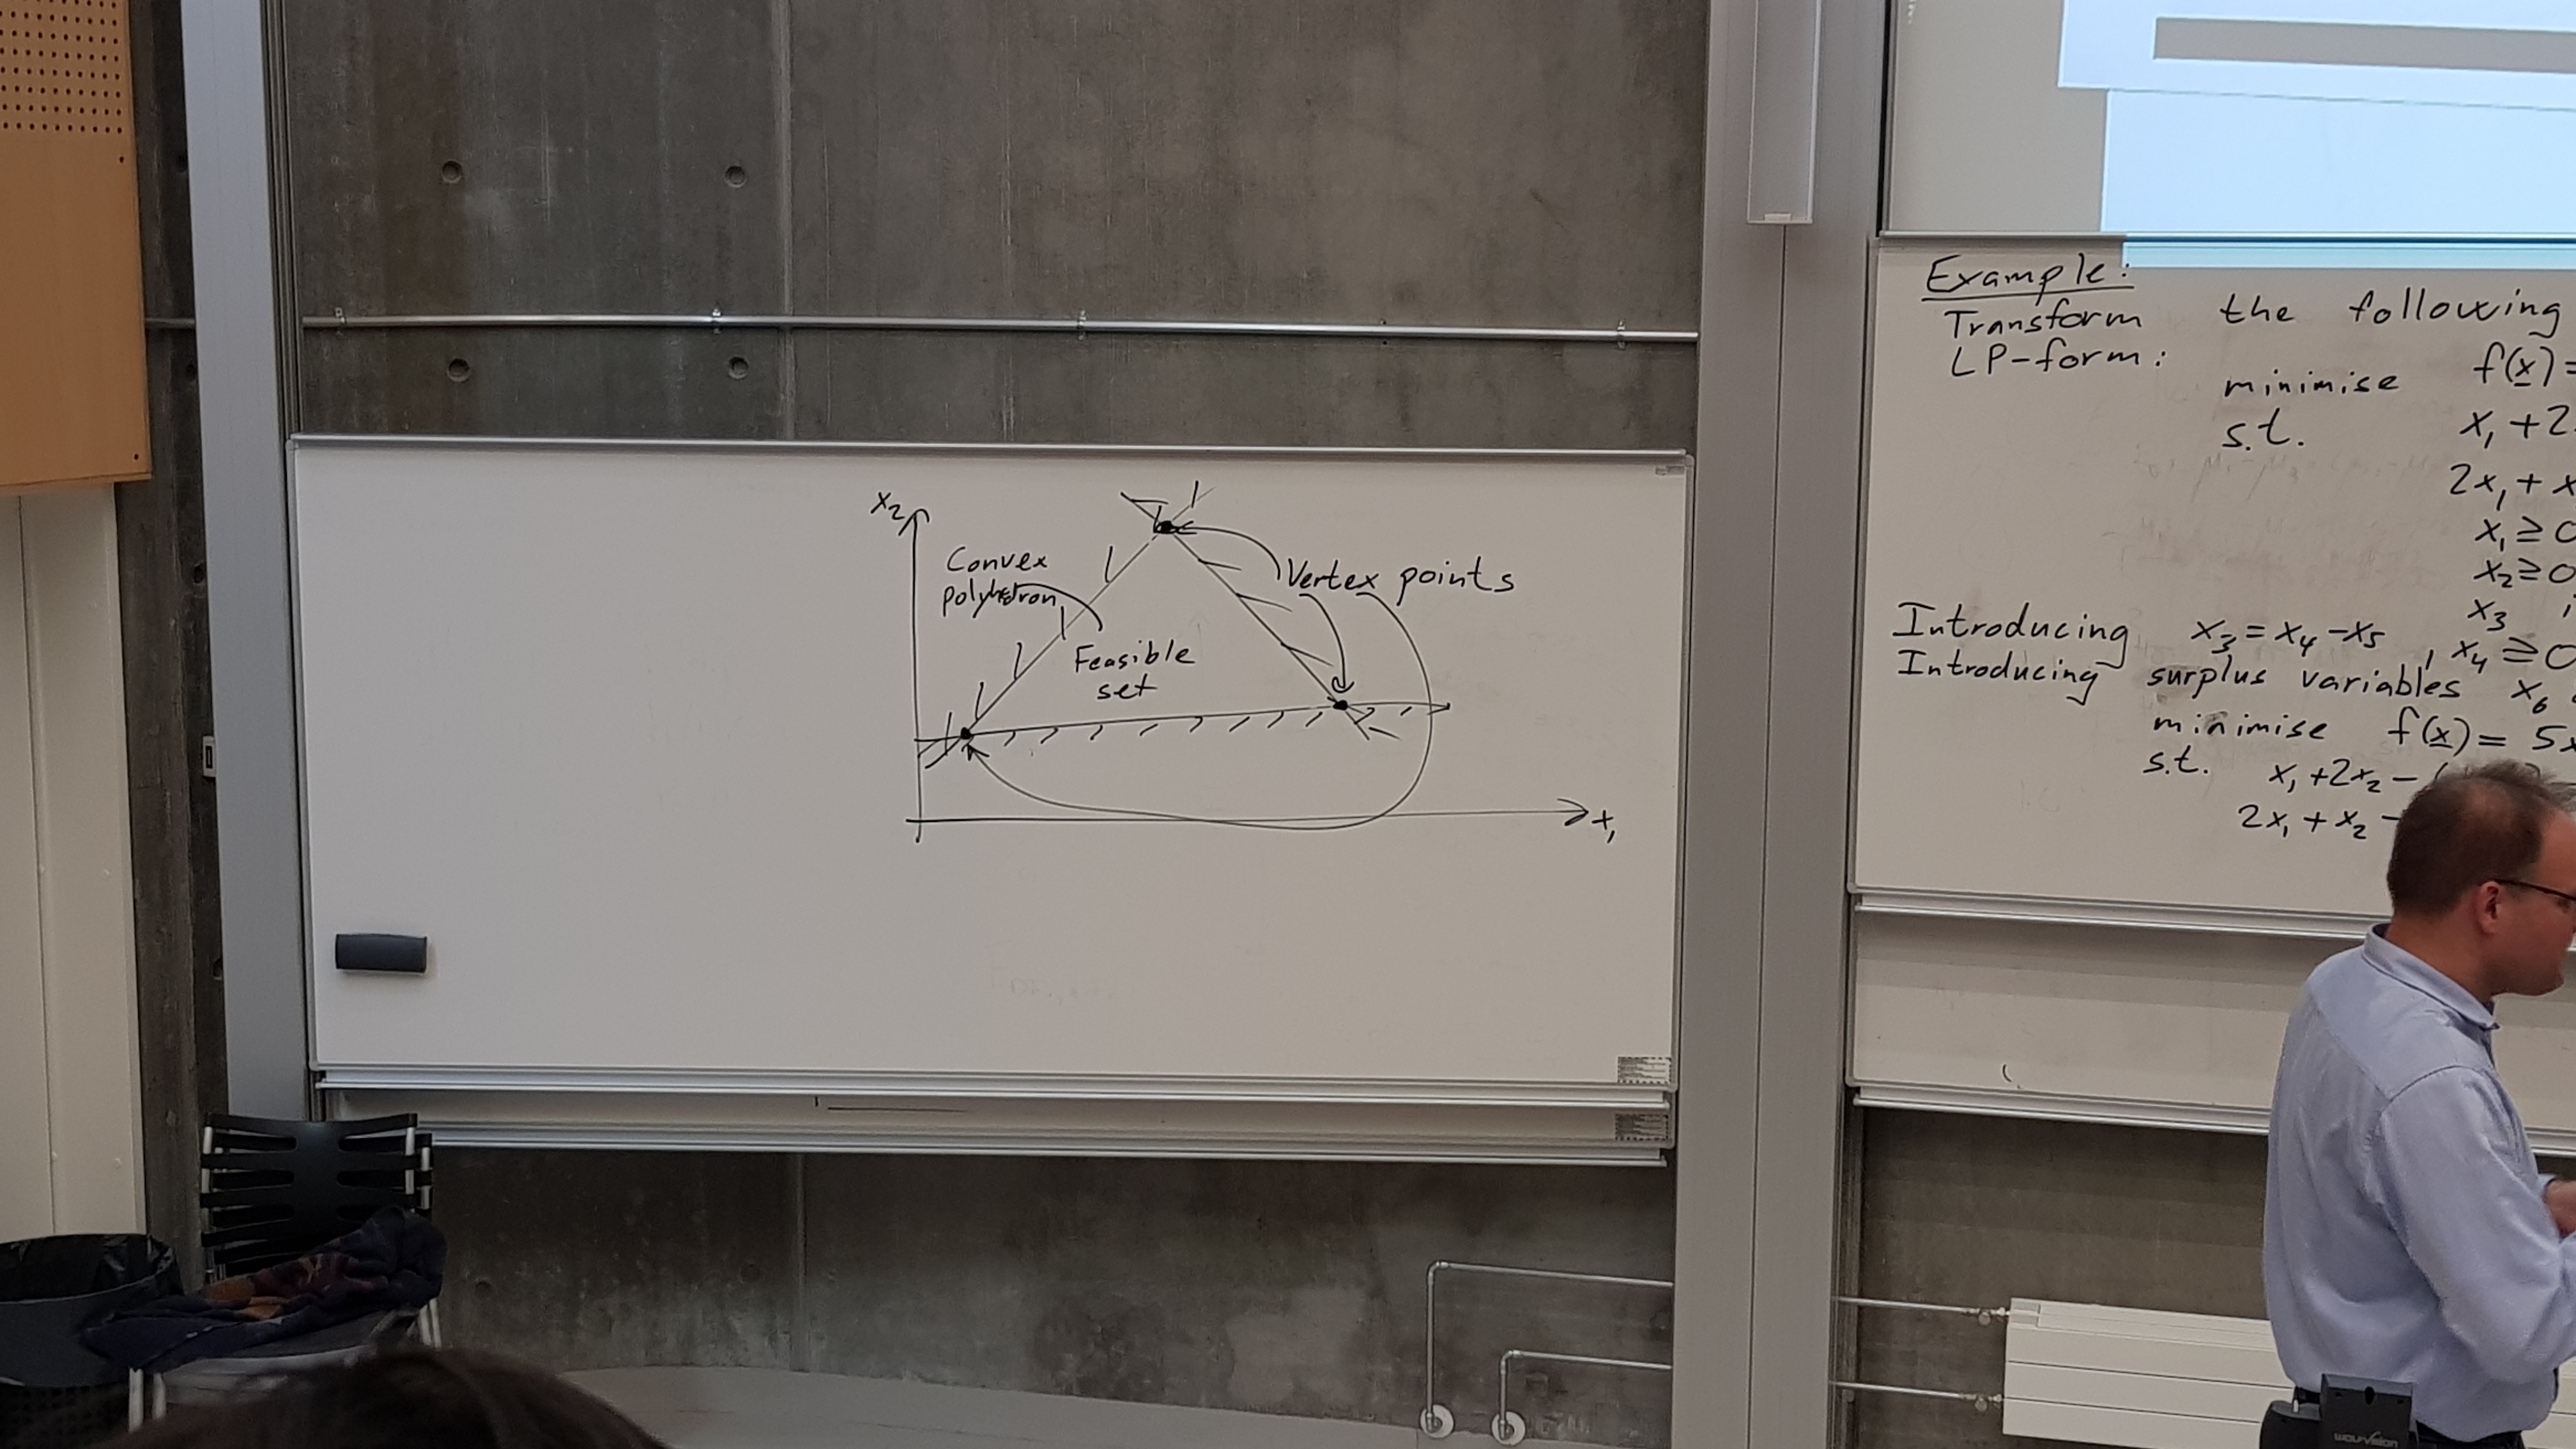 x₂
Convex
polyhetron
Feasible
set
Vertex points
x₁
Example:
Transform the following
LP-form:
minimise f(x) =
s.t. x₁ + 2
2x₁ + x
x₁ ≥ 0
x₂ ≥ 0
x₃ i
Introducing x₃ = x₄ - x₅ , x₄ ≥ 0
Introducing surplus variables x₆
minimise f(x) = 5x
s.t. x₁ + 2x₂ - (
2x₁ + x₂ -
wolfvision